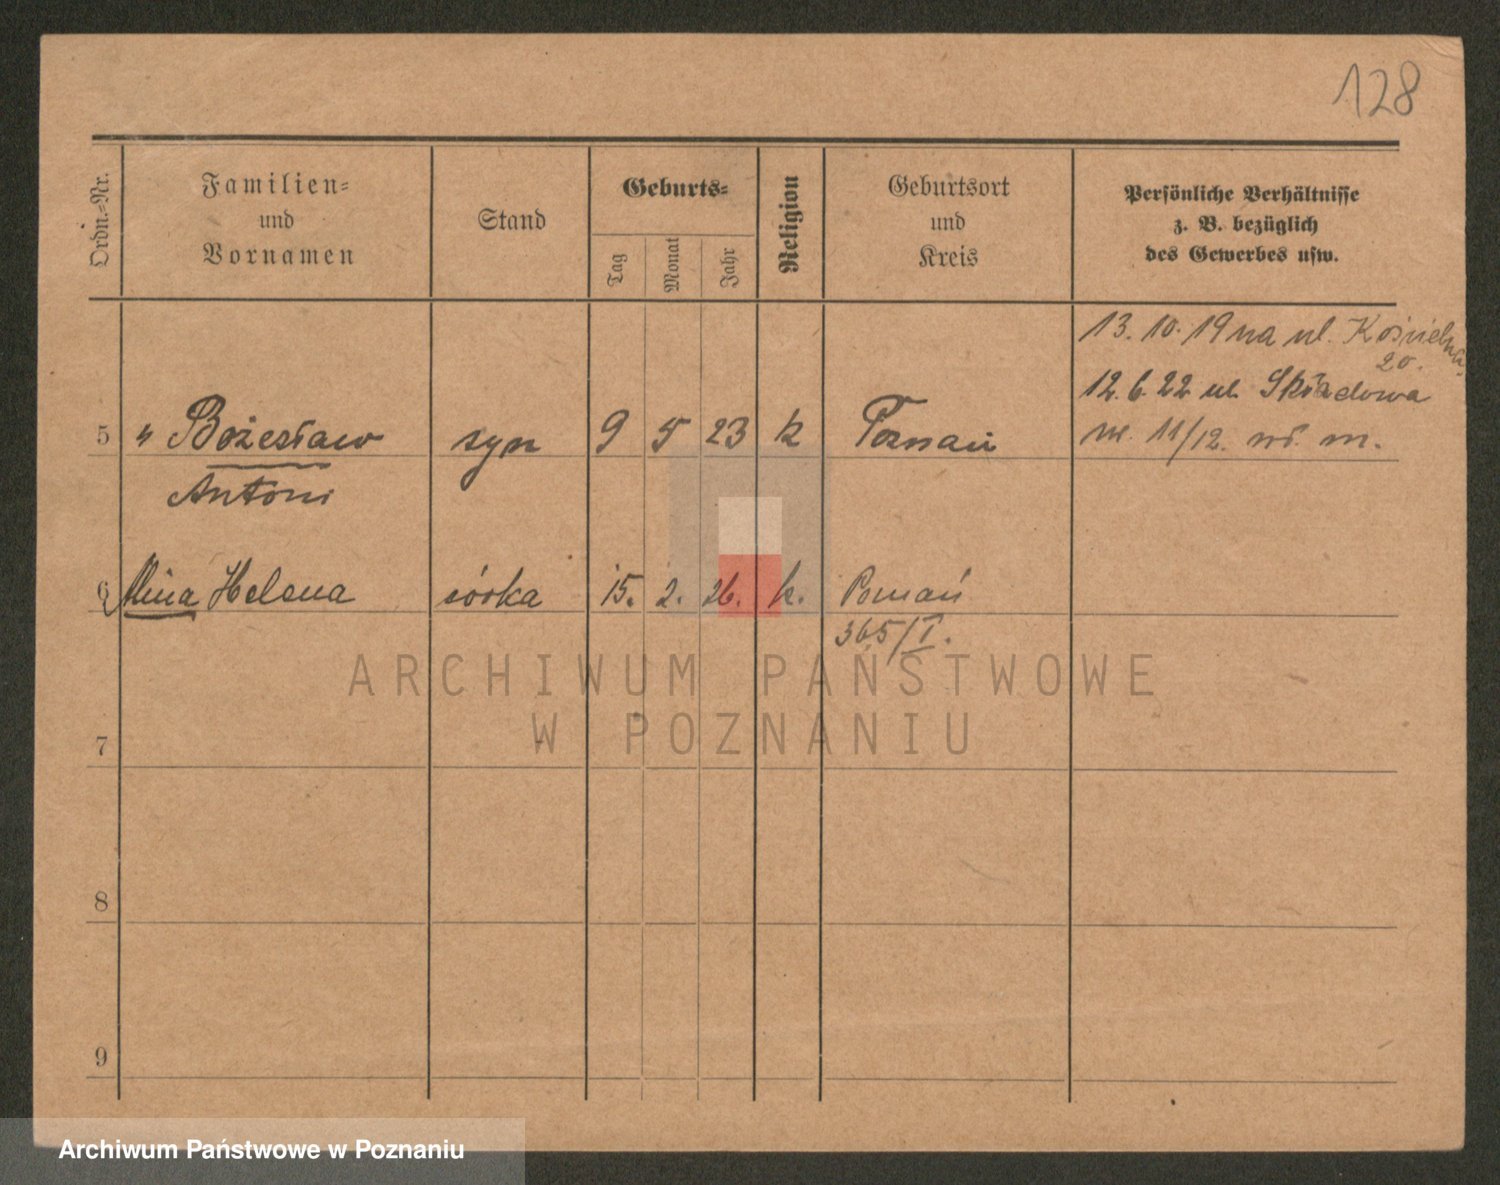 128
Ordn.-Nr.
Familien-
und
Vornamen
Stand
Geburts-
Tag
Monat
Jahr
Religion
Geburtsort
und
Kreis
Persönliche Verhältnisse
z. B. bezüglich
des Gewerbes usw.
13. 10. 19 na ul. Kościelna
20.
12. 6. 22 ul. Składowa
11/12. m.
5 " Bożesław syn 9 5 23 k Poznań
Antoni
6 Alina Helena córka 15. 2. 26. k. Poznań
365/I.
ARCHIWUM PAŃSTWOWE
W POZNANIU
7
8
9
Archiwum Państwowe w Poznaniu